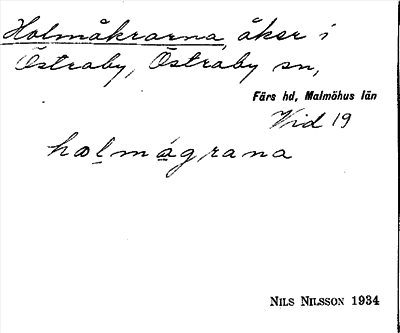 Holmåkrarna, åker i
Östraby, Östraby sn,
Färs hd, Malmöhus län
Vid 19
holmágrana
NILS NILSSON 1934